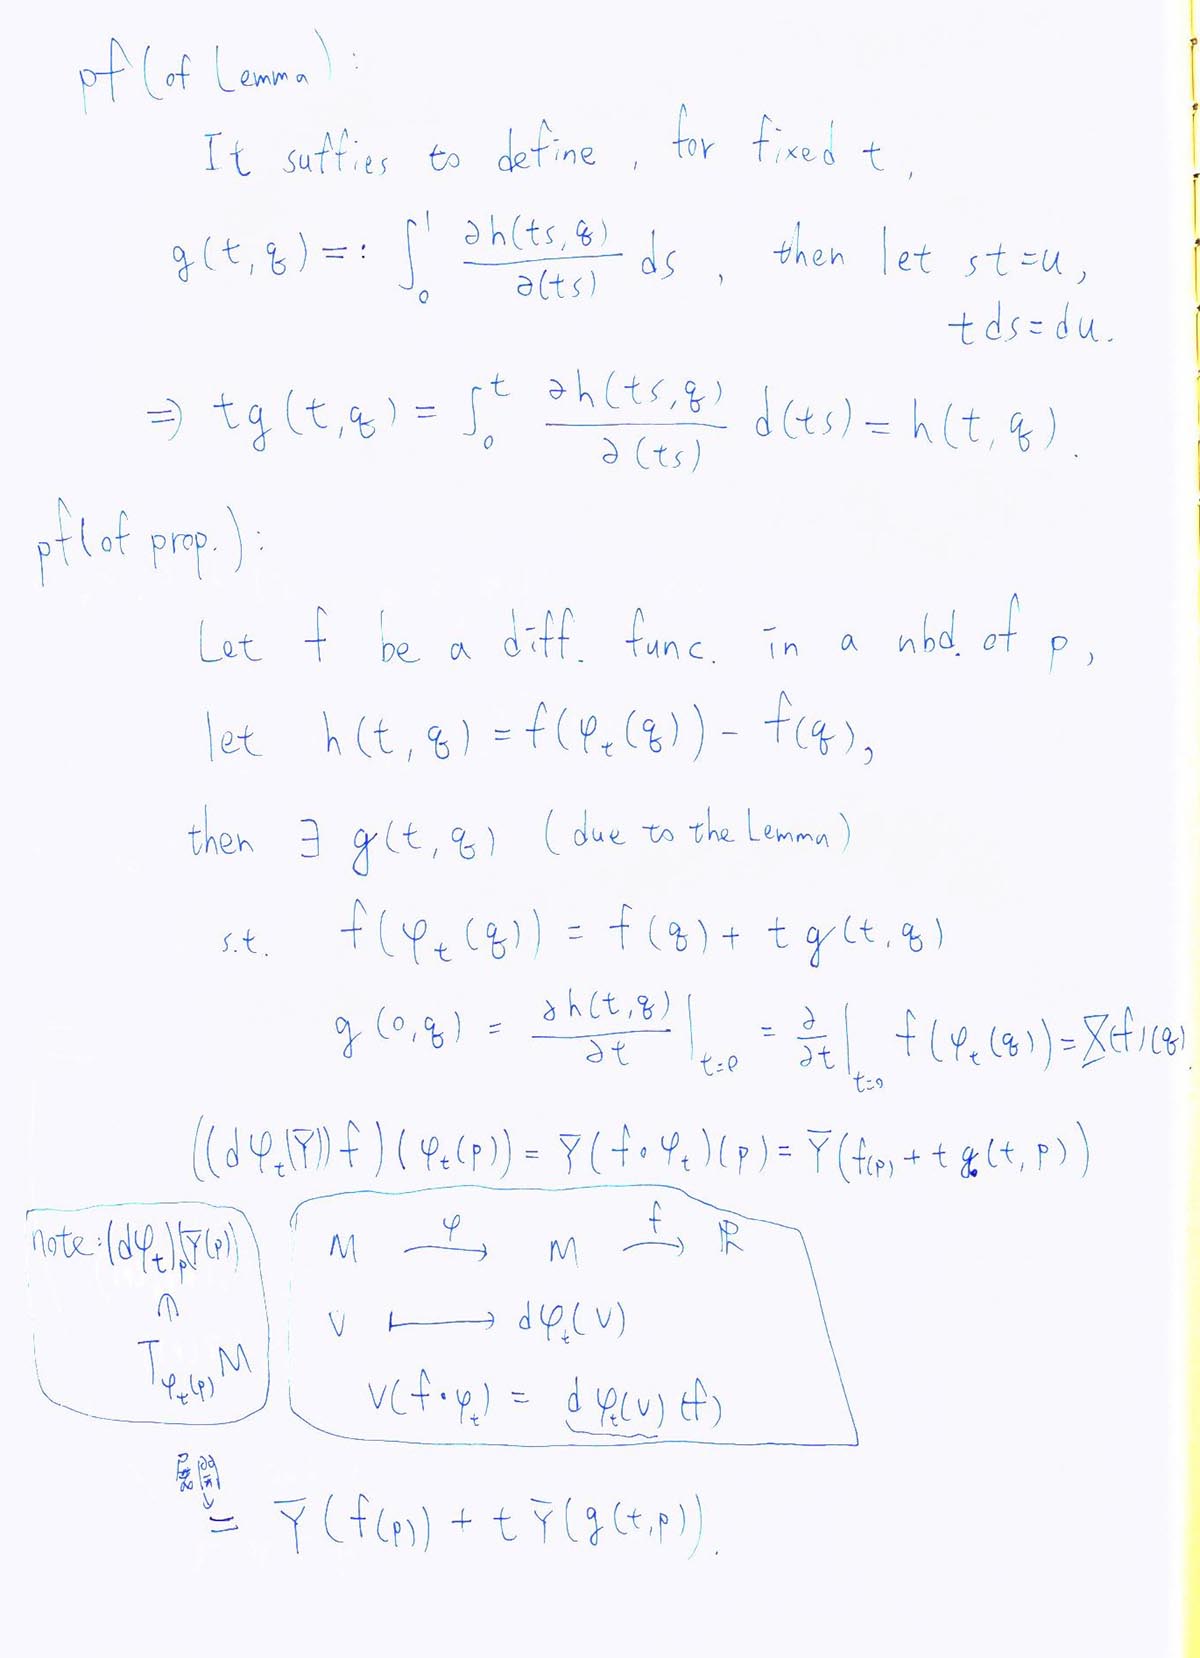 pf (of Lemma):
It suffies to define, for fixed t,
g(t,q) =: ∫₀¹ ∂h(ts,q)/∂(ts) ds, then let st=u,
t ds = du.
⇒ tg(t,q) = ∫₀ᵗ ∂h(ts,q)/∂(ts) d(ts) = h(t,q).
pf (of prop.):
Let f be a diff. func. in a nbd. of p,
let h(t,q) = f(φₜ(q)) - f(q),
then ∃ g(t,q) (due to the Lemma)
s.t. f(φₜ(q)) = f(q) + t g(t,q)
g(0,q) = ∂h(t,q)/∂t |ₜ₌₀ = ∂/∂t |ₜ₌₀ f(φₜ(q)) = X(f)(q).
((dφₜ(Y))f)(φₜ(p)) = Y(f∘φₜ)(p) = Y(f(p) + t g(t,p))
note: (dφₜ)ₚ(Y(p))
∈
T_φₜ(p) M
M →^φ M →^f ℝ
v ⟼ dφₜ(v)
v(f∘φₜ) = dφₜ(v)(f)
展開
= Y(f(p)) + t Y(g(t,p)).